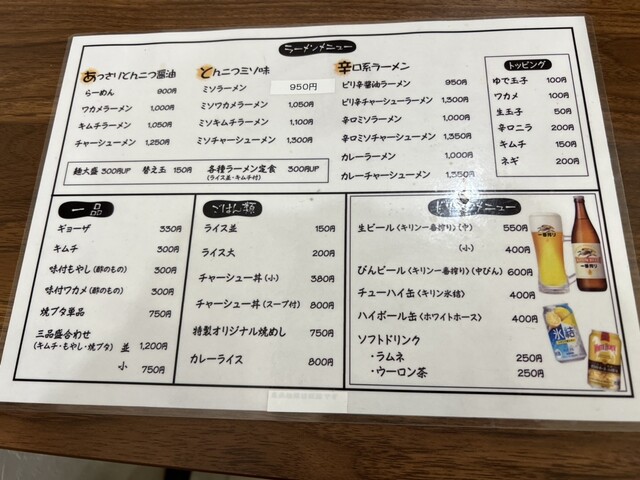 ラーメンメニュー
あっさりとんこつ醤油
らーめん 900円
ワカメラーメン 1,000円
キムチラーメン 1,050円
チャーシューメン 1,250円
とんこつミソ味
ミソラーメン 950円
ミソワカメラーメン 1,050円
ミソキムチラーメン 1,100円
ミソチャーシューメン 1,300円
辛口系ラーメン
ピリ辛醤油ラーメン 950円
ピリ辛チャーシューラーメン 1,300円
辛口ミソラーメン 1,000円
辛口ミソチャーシューメン 1,350円
カレーラーメン 1,000円
カレーチャーシューメン 1,350円
トッピング
ゆで玉子 100円
ワカメ 100円
生玉子 50円
辛口ニラ 200円
キムチ 150円
ネギ 200円
麺大盛 300円UP 替え玉 150円 各種ラーメン定食 300円UP
(ライス並・キムチ付)
一品
ギョーザ 330円
キムチ 300円
味付もやし(酢のもの) 300円
味付ワカメ(酢のもの) 300円
焼ブタ単品 750円
三品盛合わせ
(キムチ・もやし・焼ブタ) 並 1,200円
小 750円
ごはん類
ライス並 150円
ライス大 200円
チャーシュー丼(小) 380円
チャーシュー丼(スープ付) 800円
特製オリジナル焼めし 750円
カレーライス 800円
メニュー
生ビール〈キリン一番搾り〉(中) 550円
(小) 400円
びんビール〈キリン一番搾り〉(中びん) 600円
チューハイ缶〈キリン氷結〉 400円
ハイボール缶〈ホワイトホース〉 400円
ソフトドリンク
・ラムネ 250円
・ウーロン茶 250円
一番搾り
氷結